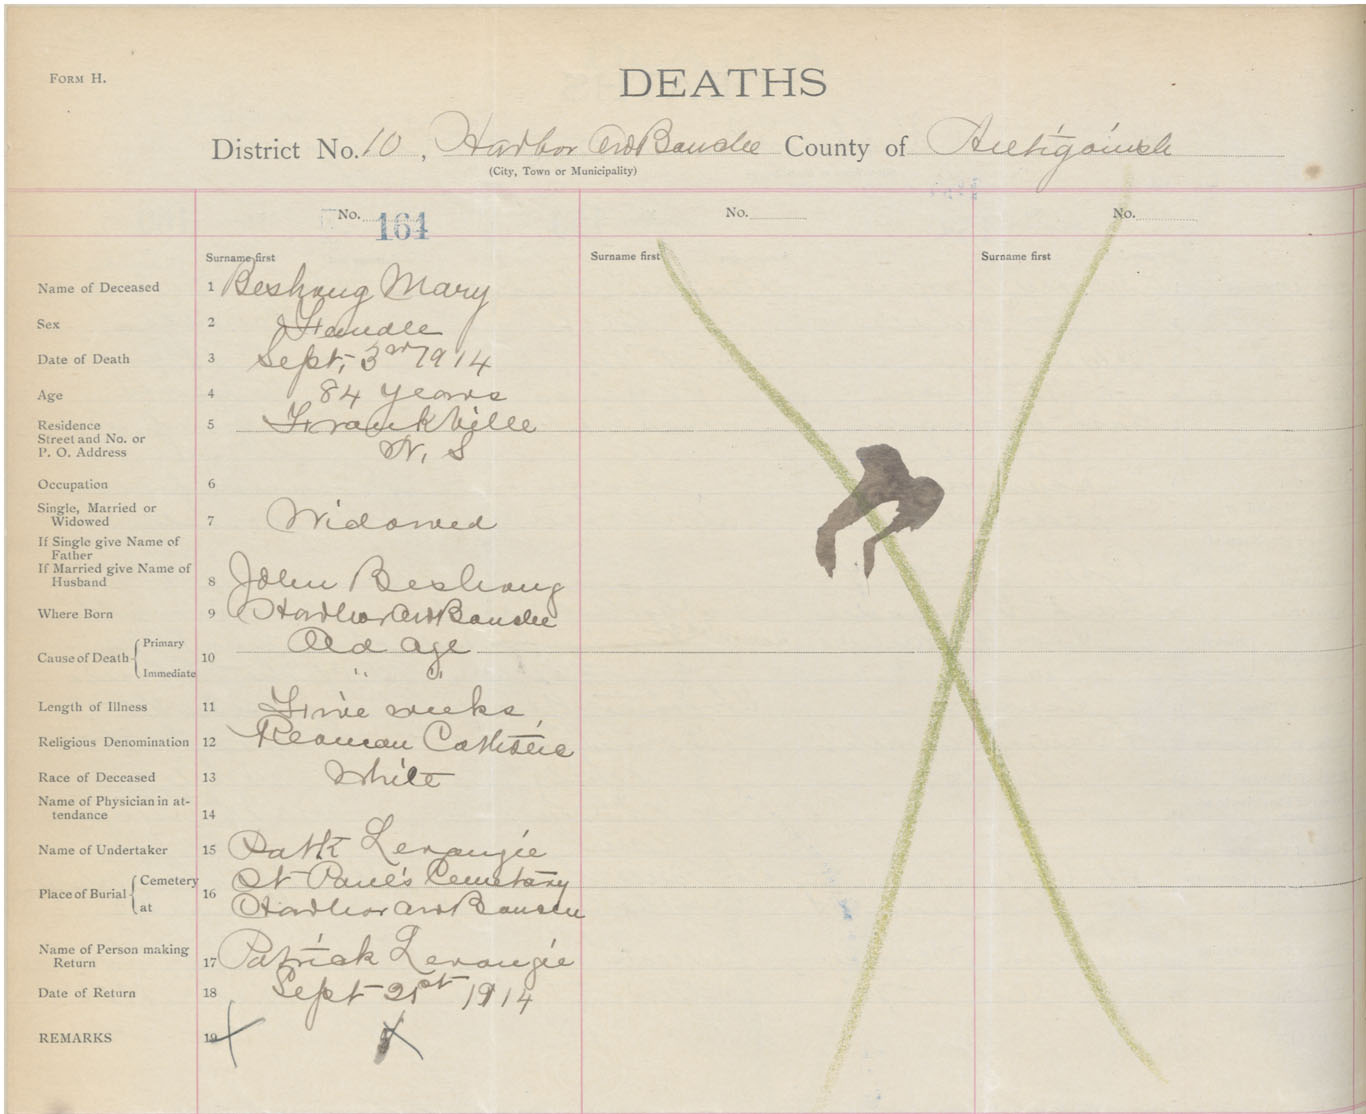 FORM H.
DEATHS
District No. 10, Harbor Au Bouche County of Antigonish
(City, Town or Municipality)
No. 164 No. No.
Surname first Surname first Surname first
Name of Deceased 1 Beshong Mary
Sex 2 Female
Date of Death 3 Sept, 3rd 1914
Age 4 84 years
Residence 5 Frankville
Street and No. or
P. O. Address N, S
Occupation 6
Single, Married or
Widowed 7 Widowed
If Single give Name of
Father
If Married give Name of
Husband 8 John Beshong
Where Born 9 Harbor Au Bouche
Cause of Death Primary 10 Old age
Immediate " "
Length of Illness 11 Five weeks
Religious Denomination 12 Roman Catholic
Race of Deceased 13 White
Name of Physician in at-
tendance 14
Name of Undertaker 15 Patk Levangie
Place of Burial Cemetery 16 St Paul's Cemetary
at Harbor au Bouche
Name of Person making
Return 17 Patrick Levangie
Date of Return 18 Sept 21st 1914
REMARKS 19